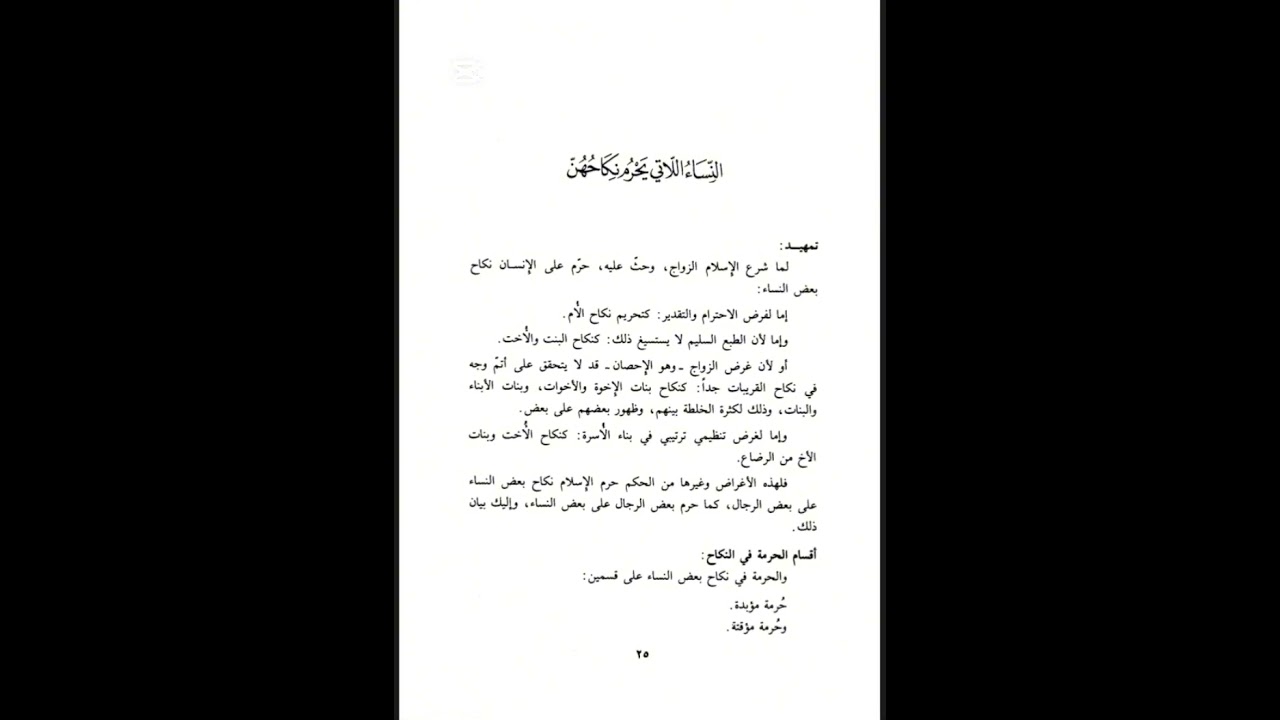 النِّسَاءُ اللّاتي يَحْرُم نِكَاحُهُنّ
تمهيــد:
لما شرع الإسلام الزواج، وحثّ عليه، حرّم على الإنسان نكاح
بعض النساء:
إما لفرض الاحترام والتقدير: كتحريم نكاح الأُم.
وإما لأن الطبع السليم لا يستسيغ ذلك: كنكاح البنت والأُخت.
أو لأن غرض الزواج ـ وهو الإحصان ـ قد لا يتحقق على أتمّ وجه
في نكاح القريبات جداً: كنكاح بنات الإخوة والأخوات، وبنات الأبناء
والبنات، وذلك لكثرة الخلطة بينهم، وظهور بعضهم على بعض.
وإما لغرض تنظيمي ترتيبي في بناء الأُسرة: كنكاح الأُخت وبنات
الأخ من الرضاع.
فلهذه الأغراض وغيرها من الحكم حرم الإسلام نكاح بعض النساء
على بعض الرجال، كما حرم بعض الرجال على بعض النساء، وإليك بيان
ذلك.
أقسام الحرمة في النكاح:
والحرمة في نكاح بعض النساء على قسمين:
حُرمة مؤبدة.
وحُرمة مؤقتة.
٢٥